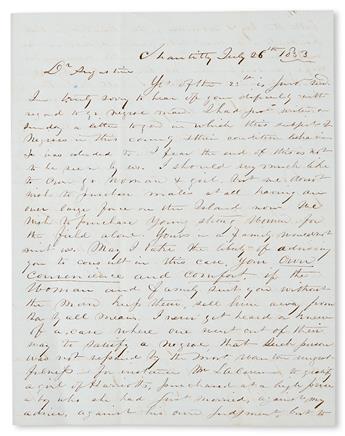 Chantilly July 26th 1853
Dr Augustine
Yrs of the 23rd is just recd
I'm truly sorry to hear of your difficulty with
regard to yr Negroe man. I had just written on
Sunday a letter to you in which this respect of
Negroes in this county & their condition & behavior
was alluded to. I fear the end of this is not
to be seen by us. I should very much like
to Own yr Woman & girl but we do not
wish to purchase males at all having an
over large force on the Island now. We
wish to purchase Young strong Women for
the field alone. Yours in a family would not
suit us. May I take the liberty of advising
you to consult in this case, your own
convenience and comfort if the
Woman and family suit you without
the Man keep them, sell him away from
by all means. I never yet heard or knew
of a case where one went out of their
way to satisfy a negroe that such person
was not repaid by the most wanton ungrate-
fulness for instance Mr to gratify
a girl of Harriotts, purchased at a high price
a boy who she had just married, against my
advice, against his own judgment, but to